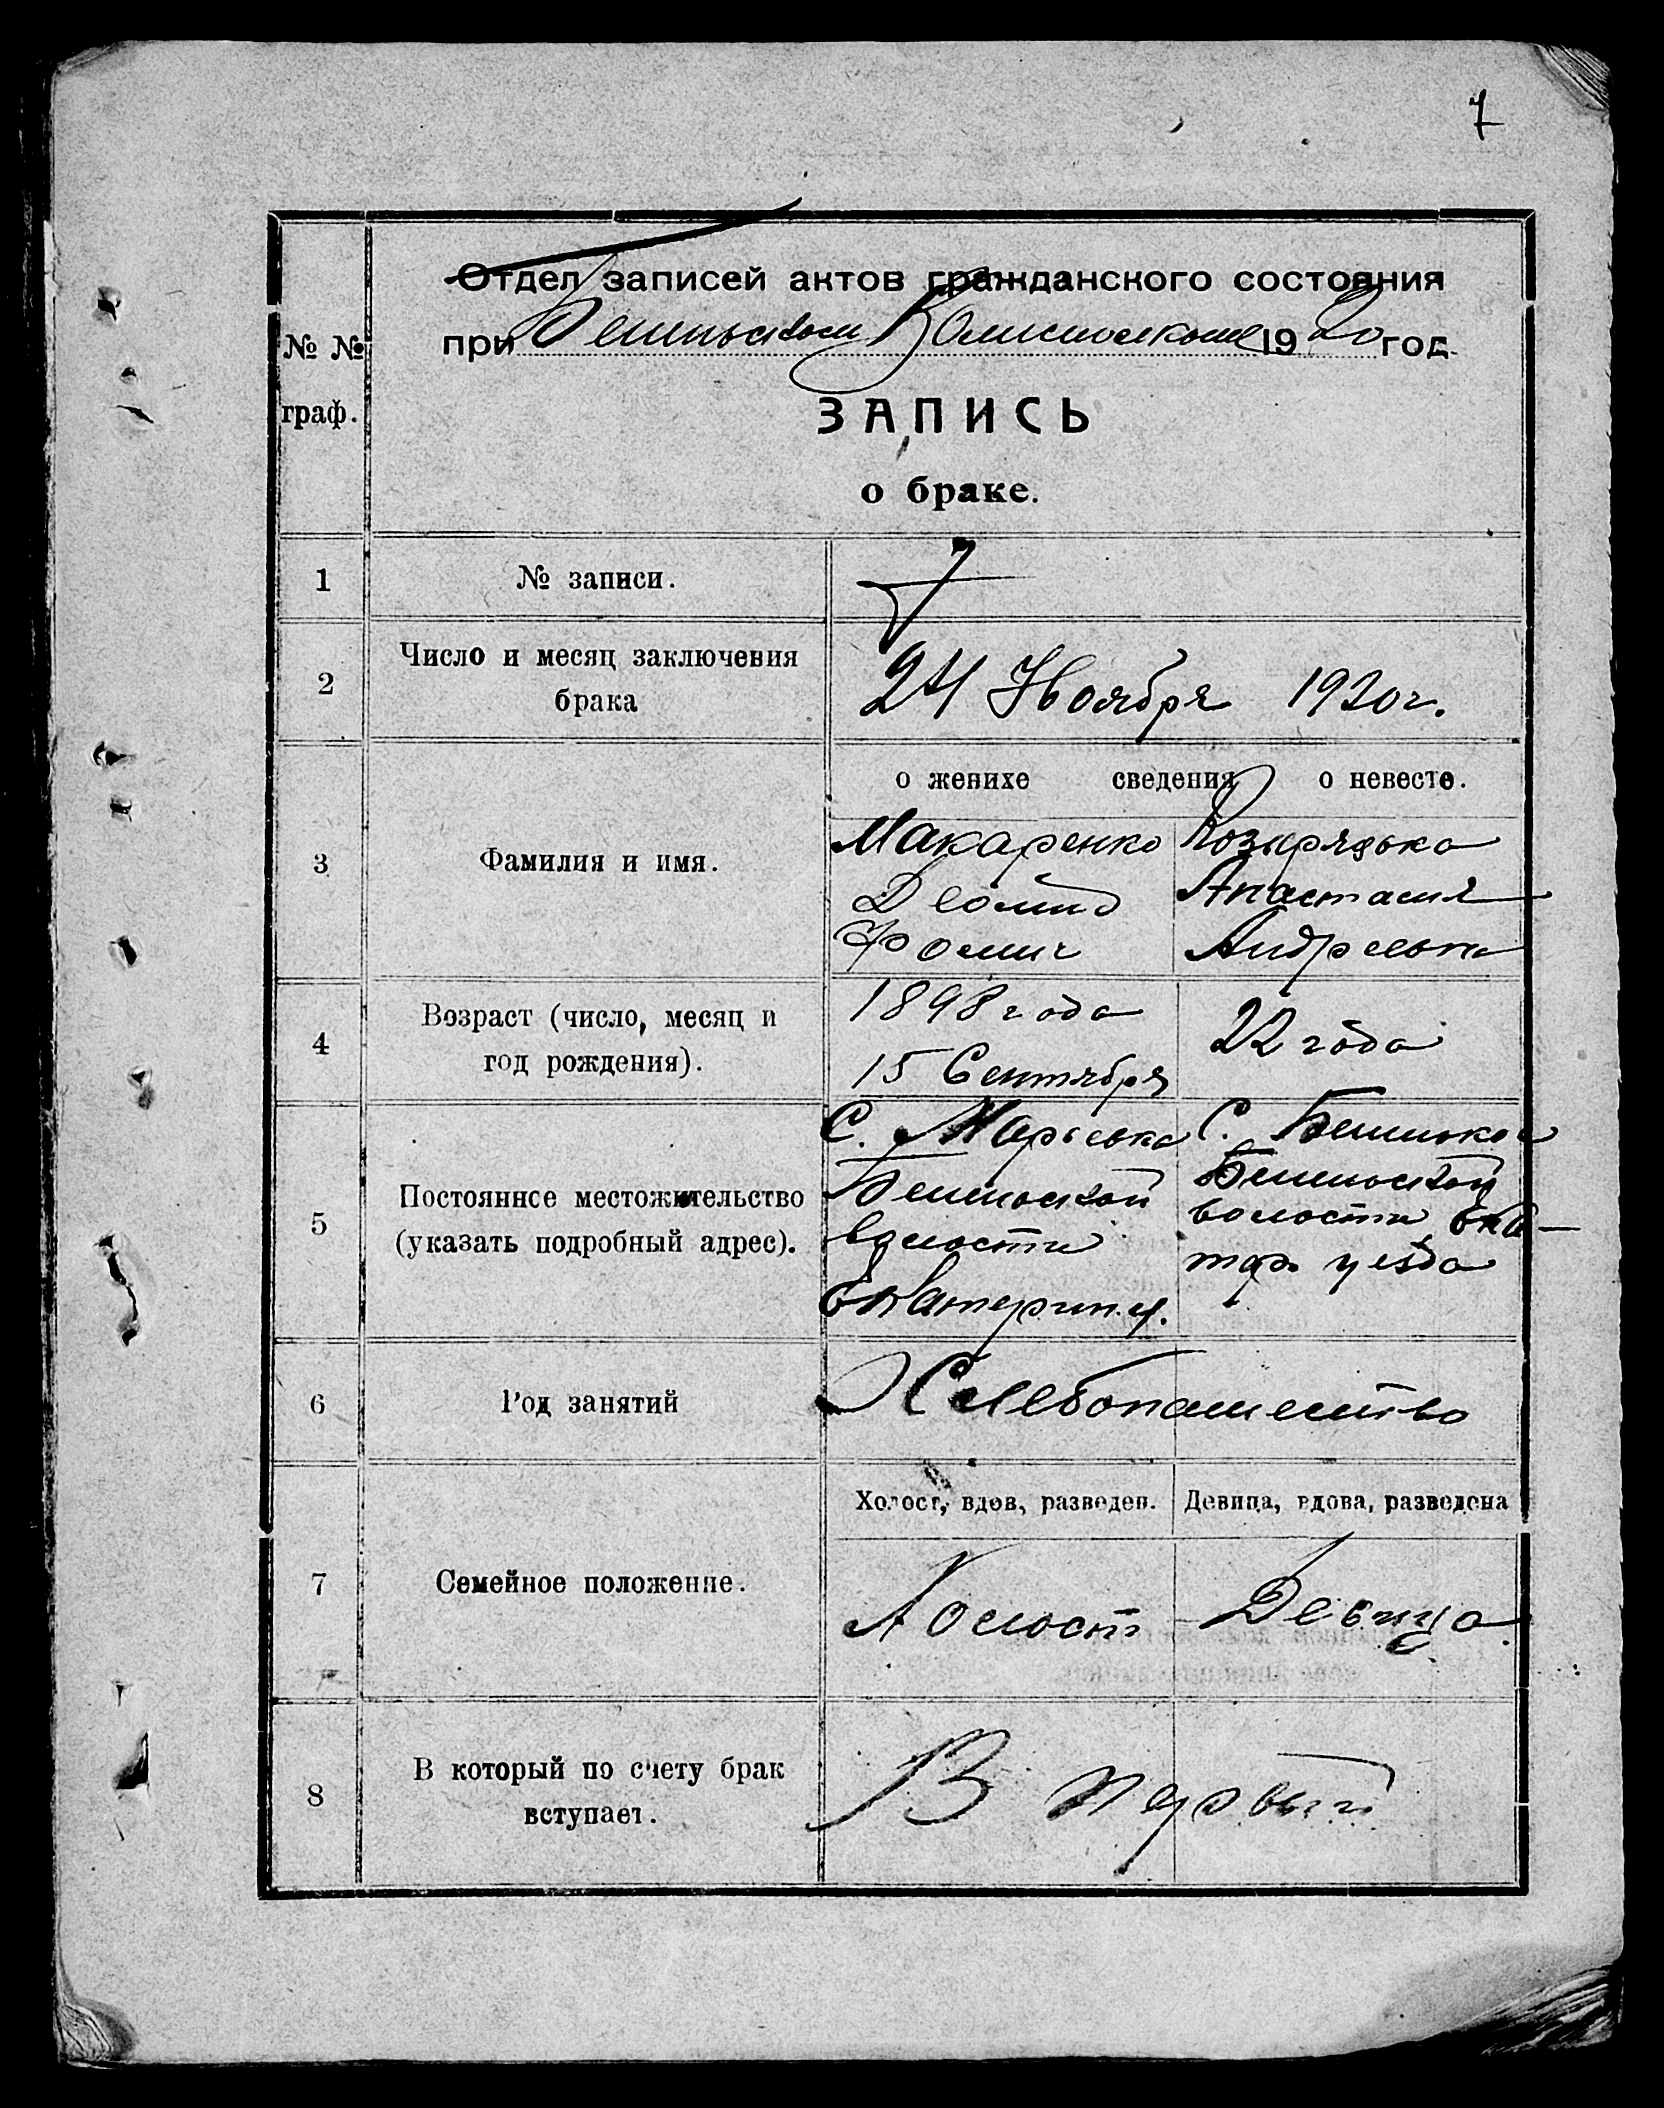 7
Отдел записей актов гражданского состояния
при Бешпагском Волисполкоме 1920 год.
№ №
граф.
ЗАПИСЬ
о браке.
1 № записи. 7
2 Число и месяц заключения
брака
24 Ноября 1920 г.
о женихе сведения о невесте.
3 Фамилия и имя.
Макаренко
Деомид
Фомич
Анастасия
Андреевна
4 Возраст (число, месяц и
год рождения).
1898 года
15 Сентября
22 года
5 Постоянное местожительство
(указать подробный адрес).
С. Марьевка
волости
Екатерин. у.
С.
волости Ека-
тер. уезда
6 Род занятий
Хлебопашество
Холост, вдов, разведен. Девица, вдова, разведена
7 Семейное положение.
Холост Девица
8 В который по счету брак
вступает.
В первый